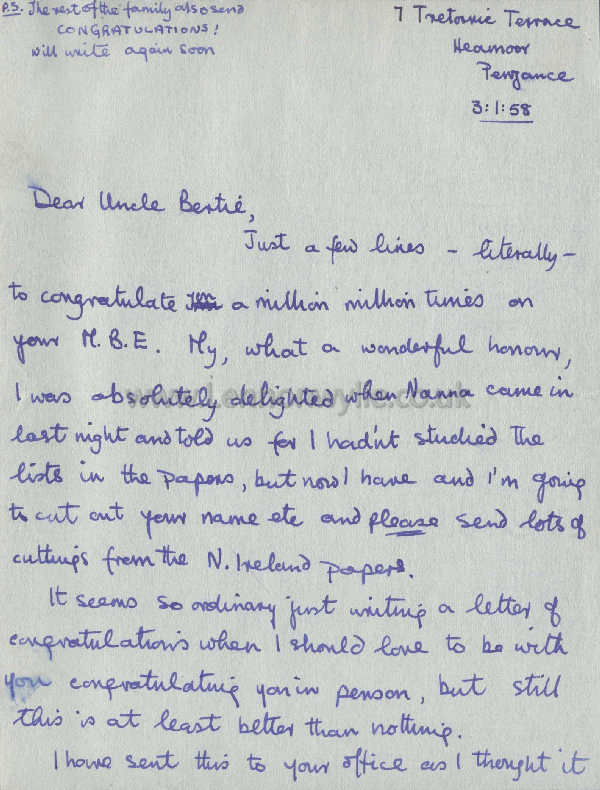 P.S. The rest of the family also send
CONGRATULATIONS!
will write again soon
7 Tretorvic Terrace
Heamoor
Penzance
3:1:58
Dear Uncle Bertie,
Just a few lines – literally –
to congratulate a million million times on
your M.B.E. My, what a wonderful honour,
I was absolutely delighted when Nanna came in
last night and told us for I had'nt studied the
lists in the papers, but now I have and I'm going
to cut out your name etc and please send lots of
cuttings from the N. Ireland papers.
It seems so ordinary just writing a letter of
congratulations when I should love to be with
you congratulating you in person, but still
this is at least better than nothing.
I have sent this to your office as I thought it